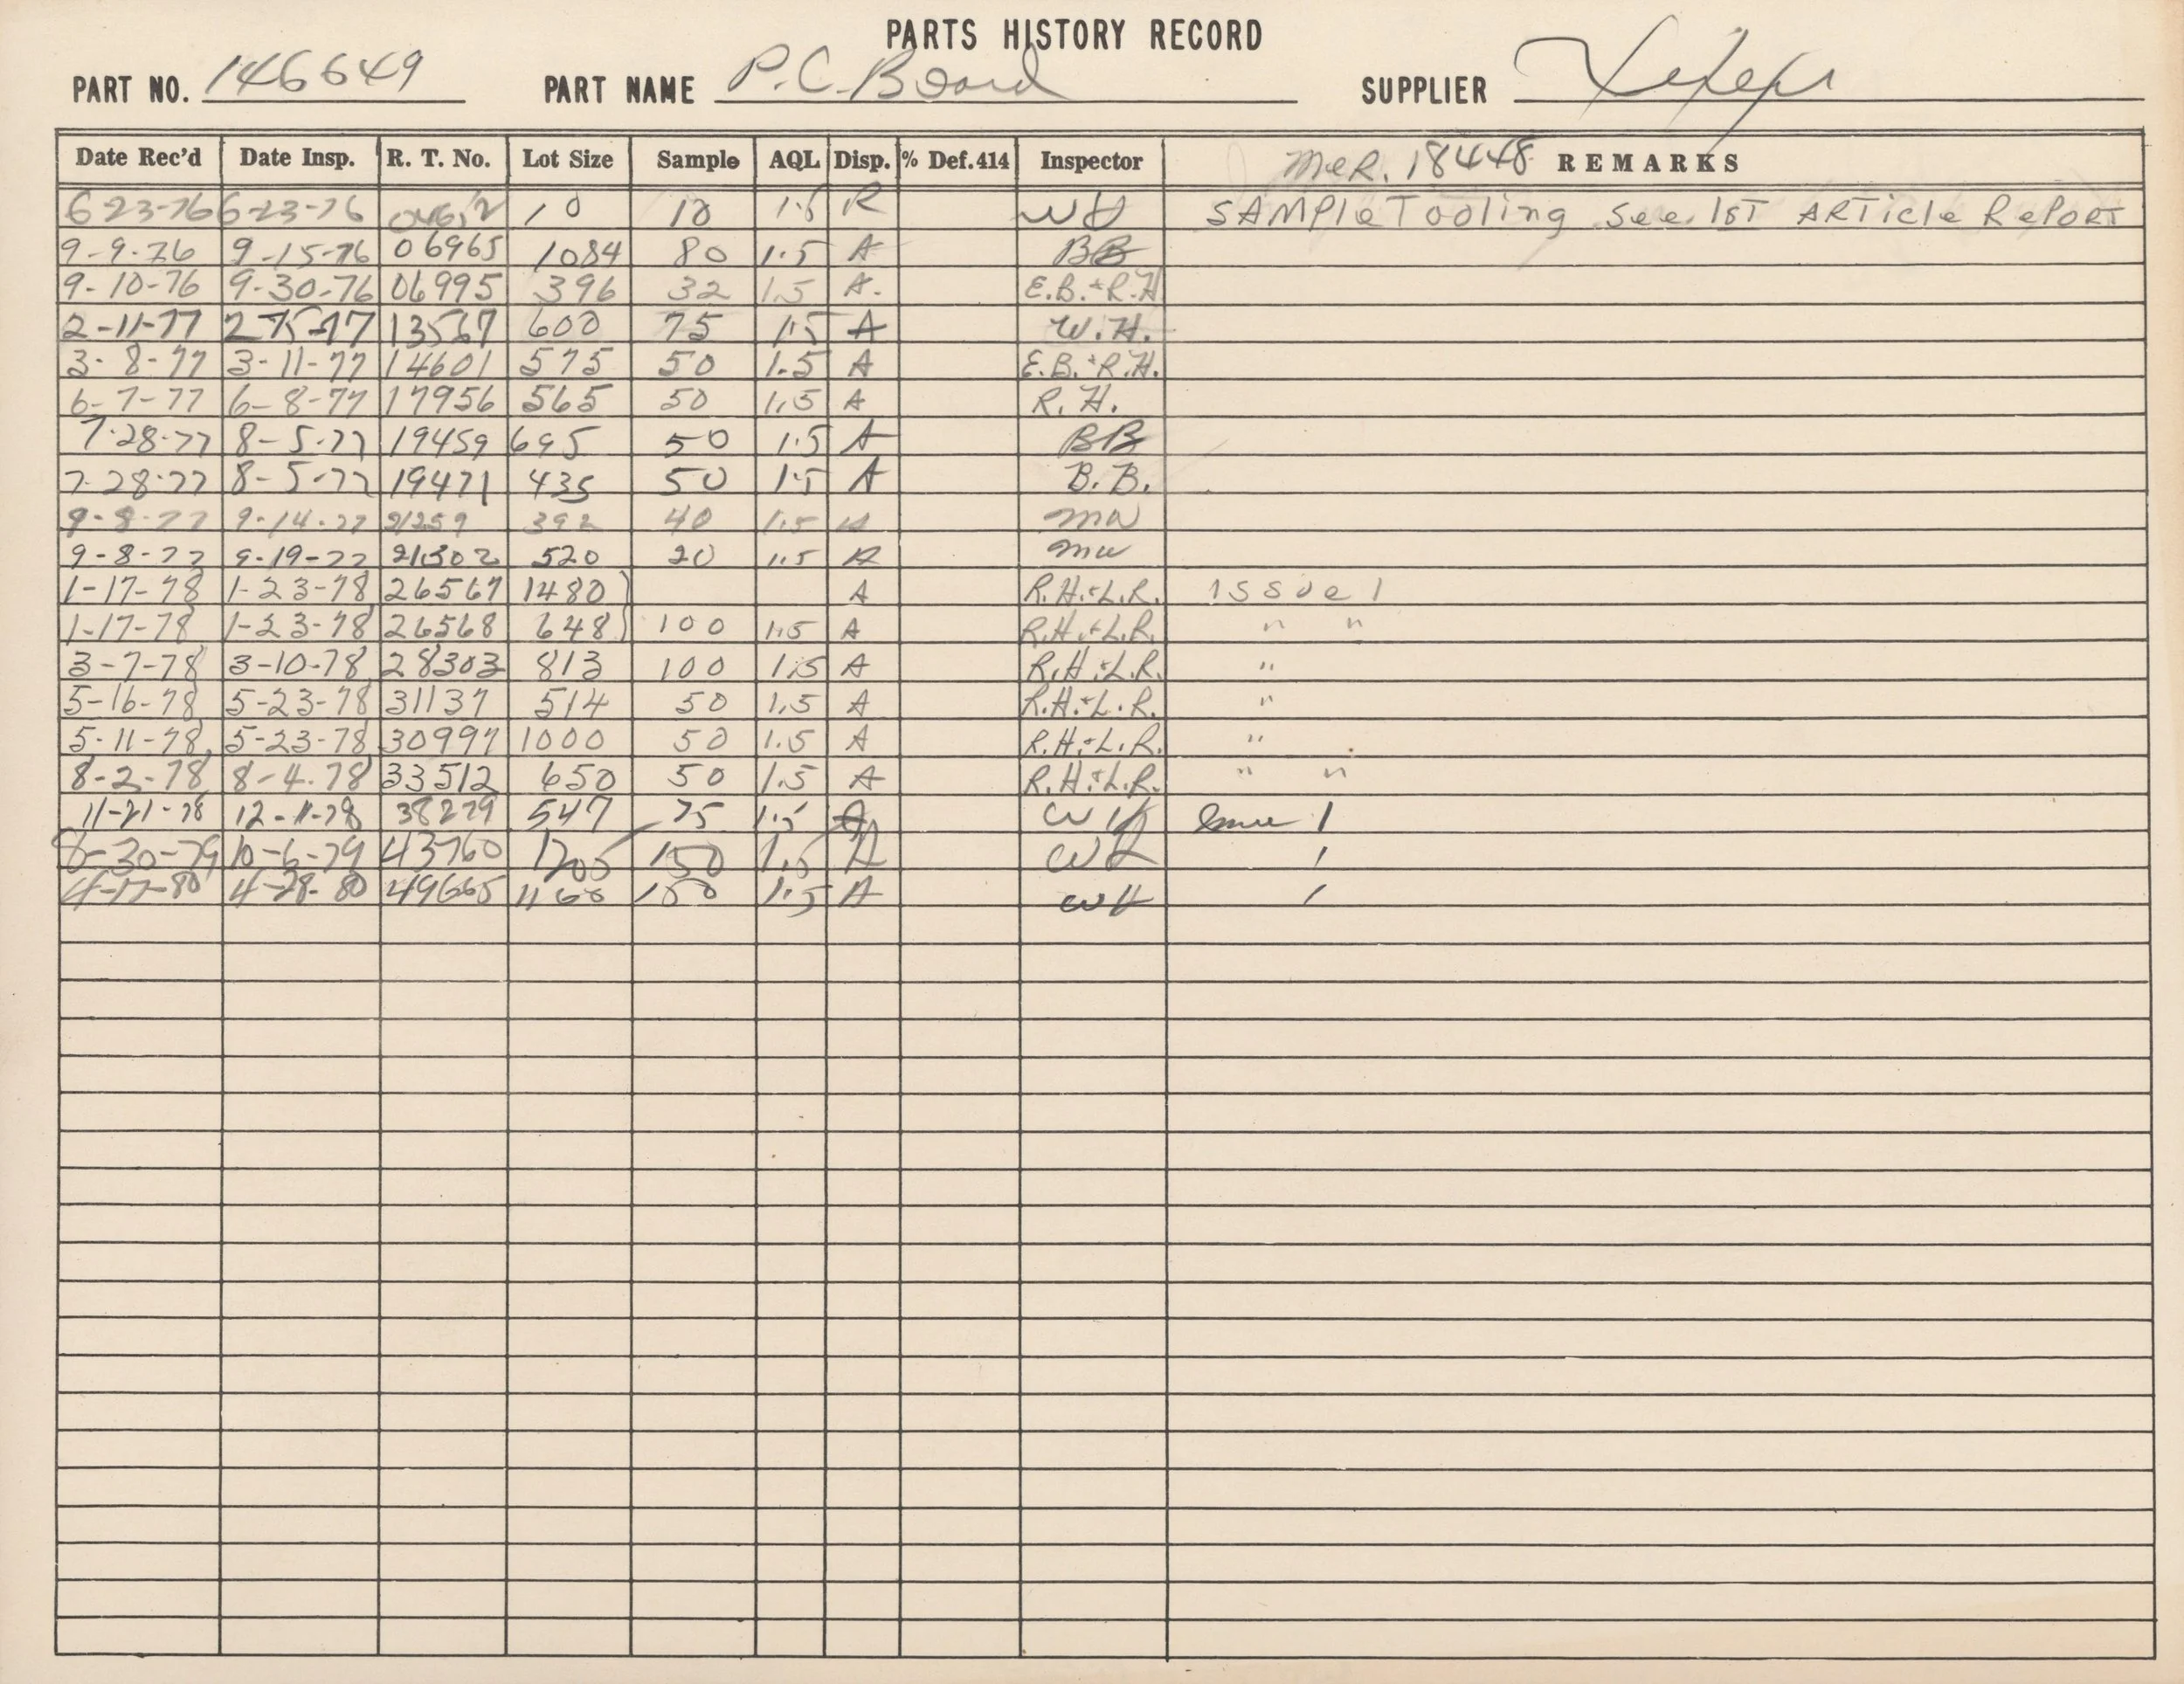 PARTS HISTORY RECORD
PART NO. 146649 PART NAME P.C. Board SUPPLIER
Date Rec'd Date Insp. R. T. No. Lot Size Sample AQL Disp. % Def. 414 Inspector MRR. 18448 REMARKS
6-23-76 6-23-76 10 10 1.5 R WH SAMPle Tooling See 1ST ARTicle RePoRT
9-9-76 9-15-76 06965 1084 80 1.5 A BB
9-10-76 9-30-76 06995 396 32 1.5 A. E.B.+R.H
2-11-77 13567 600 75 1.5 A W.H.
3-8-77 3-11-77 14601 575 50 1.5 A E.B.+R.H.
6-7-77 6-8-77 17956 565 50 1.5 A R.H.
7-28-77 8-5-77 19459 695 50 1.5 A BB
7-28-77 8-5-77 19471 435 50 1.5 A B.B.
9-8-77 9-14-77 21259 392 40 1.5 A
9-8-77 9-19-77 21302 520 20 1.5
1-17-78 1-23-78 26567 1480 A R.H.+L.R. Issue 1
1-17-78 1-23-78 26568 648 100 1.5 A R.H.+L.R. " "
3-7-78 3-10-78 28303 813 100 1.5 A R.H.+L.R. "
5-16-78 5-23-78 31137 514 50 1.5 A R.H.+L.R. "
5-11-78 5-23-78 30997 1000 50 1.5 A R.H.+L.R. "
8-2-78 8-4-78 33512 650 50 1.5 A R.H.+L.R. " "
11-21-78 12-11-78 38279 547 75 1.5 A WH Issue 1
8-30-79 10-6-79 43760 1205 150 1.5 A WH 1
4-17-80 4-28-80 49665 1168 150 1.5 A WH 1